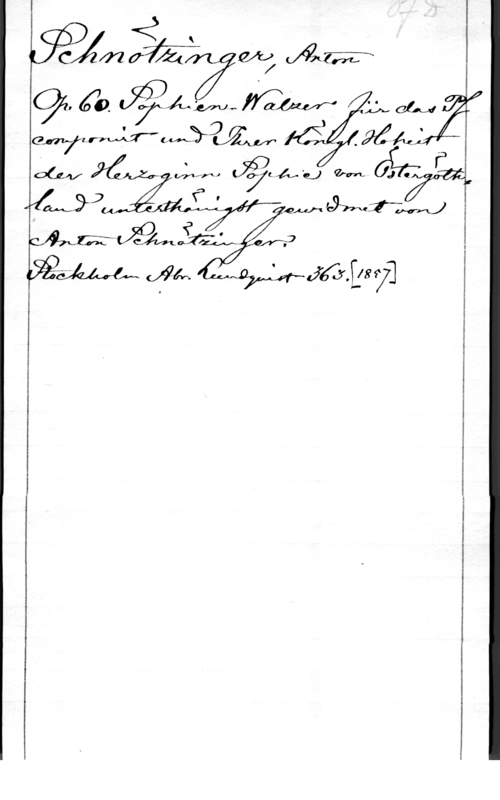 Schnötzinger, Anton
Op. 60. Sophien-Walzer für das Pf
componirt und Ihrer Königl. Hoheit
der Herzoginn Sophie von Östergöth-
land unterthänigst gewidmet von
Anton Schnötzinger.
Stockholm Abr. Lundquist 363. [1857]